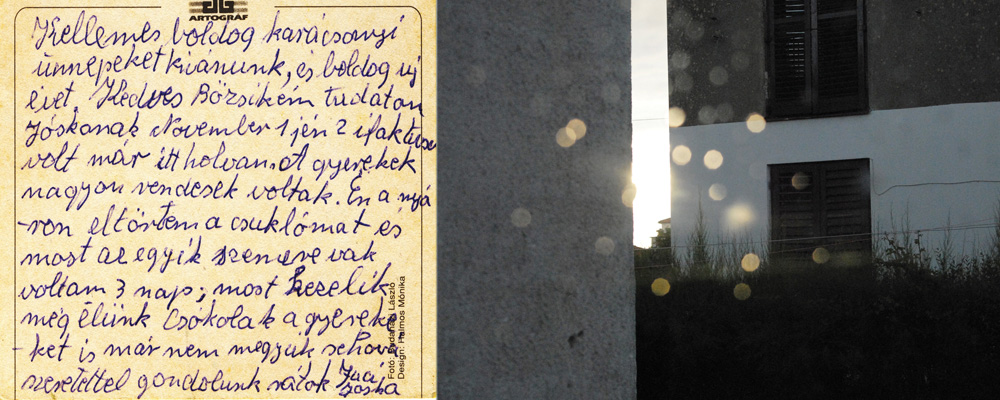 ARTOGRÁF
Kellemes boldog karácsonyi
ünnepeket kivánunk, és boldog uj
évet. Kedves Bözsikém tudaton
Jóskának November 1 jén 2 infaktusa
volt már itt holvan. A gyerekek
nagyon rendesek voltak. Én a nyá
-ron eltörtem a csuklómat és
most az egyik szememre vak
voltam 3 nap; most kezelik
még élünk Csókolak a gyereke
-ket is már nem megyük sehova
szeretettel gondolunk rátok Juci
Jóska
László
Design: Halmos Mónika